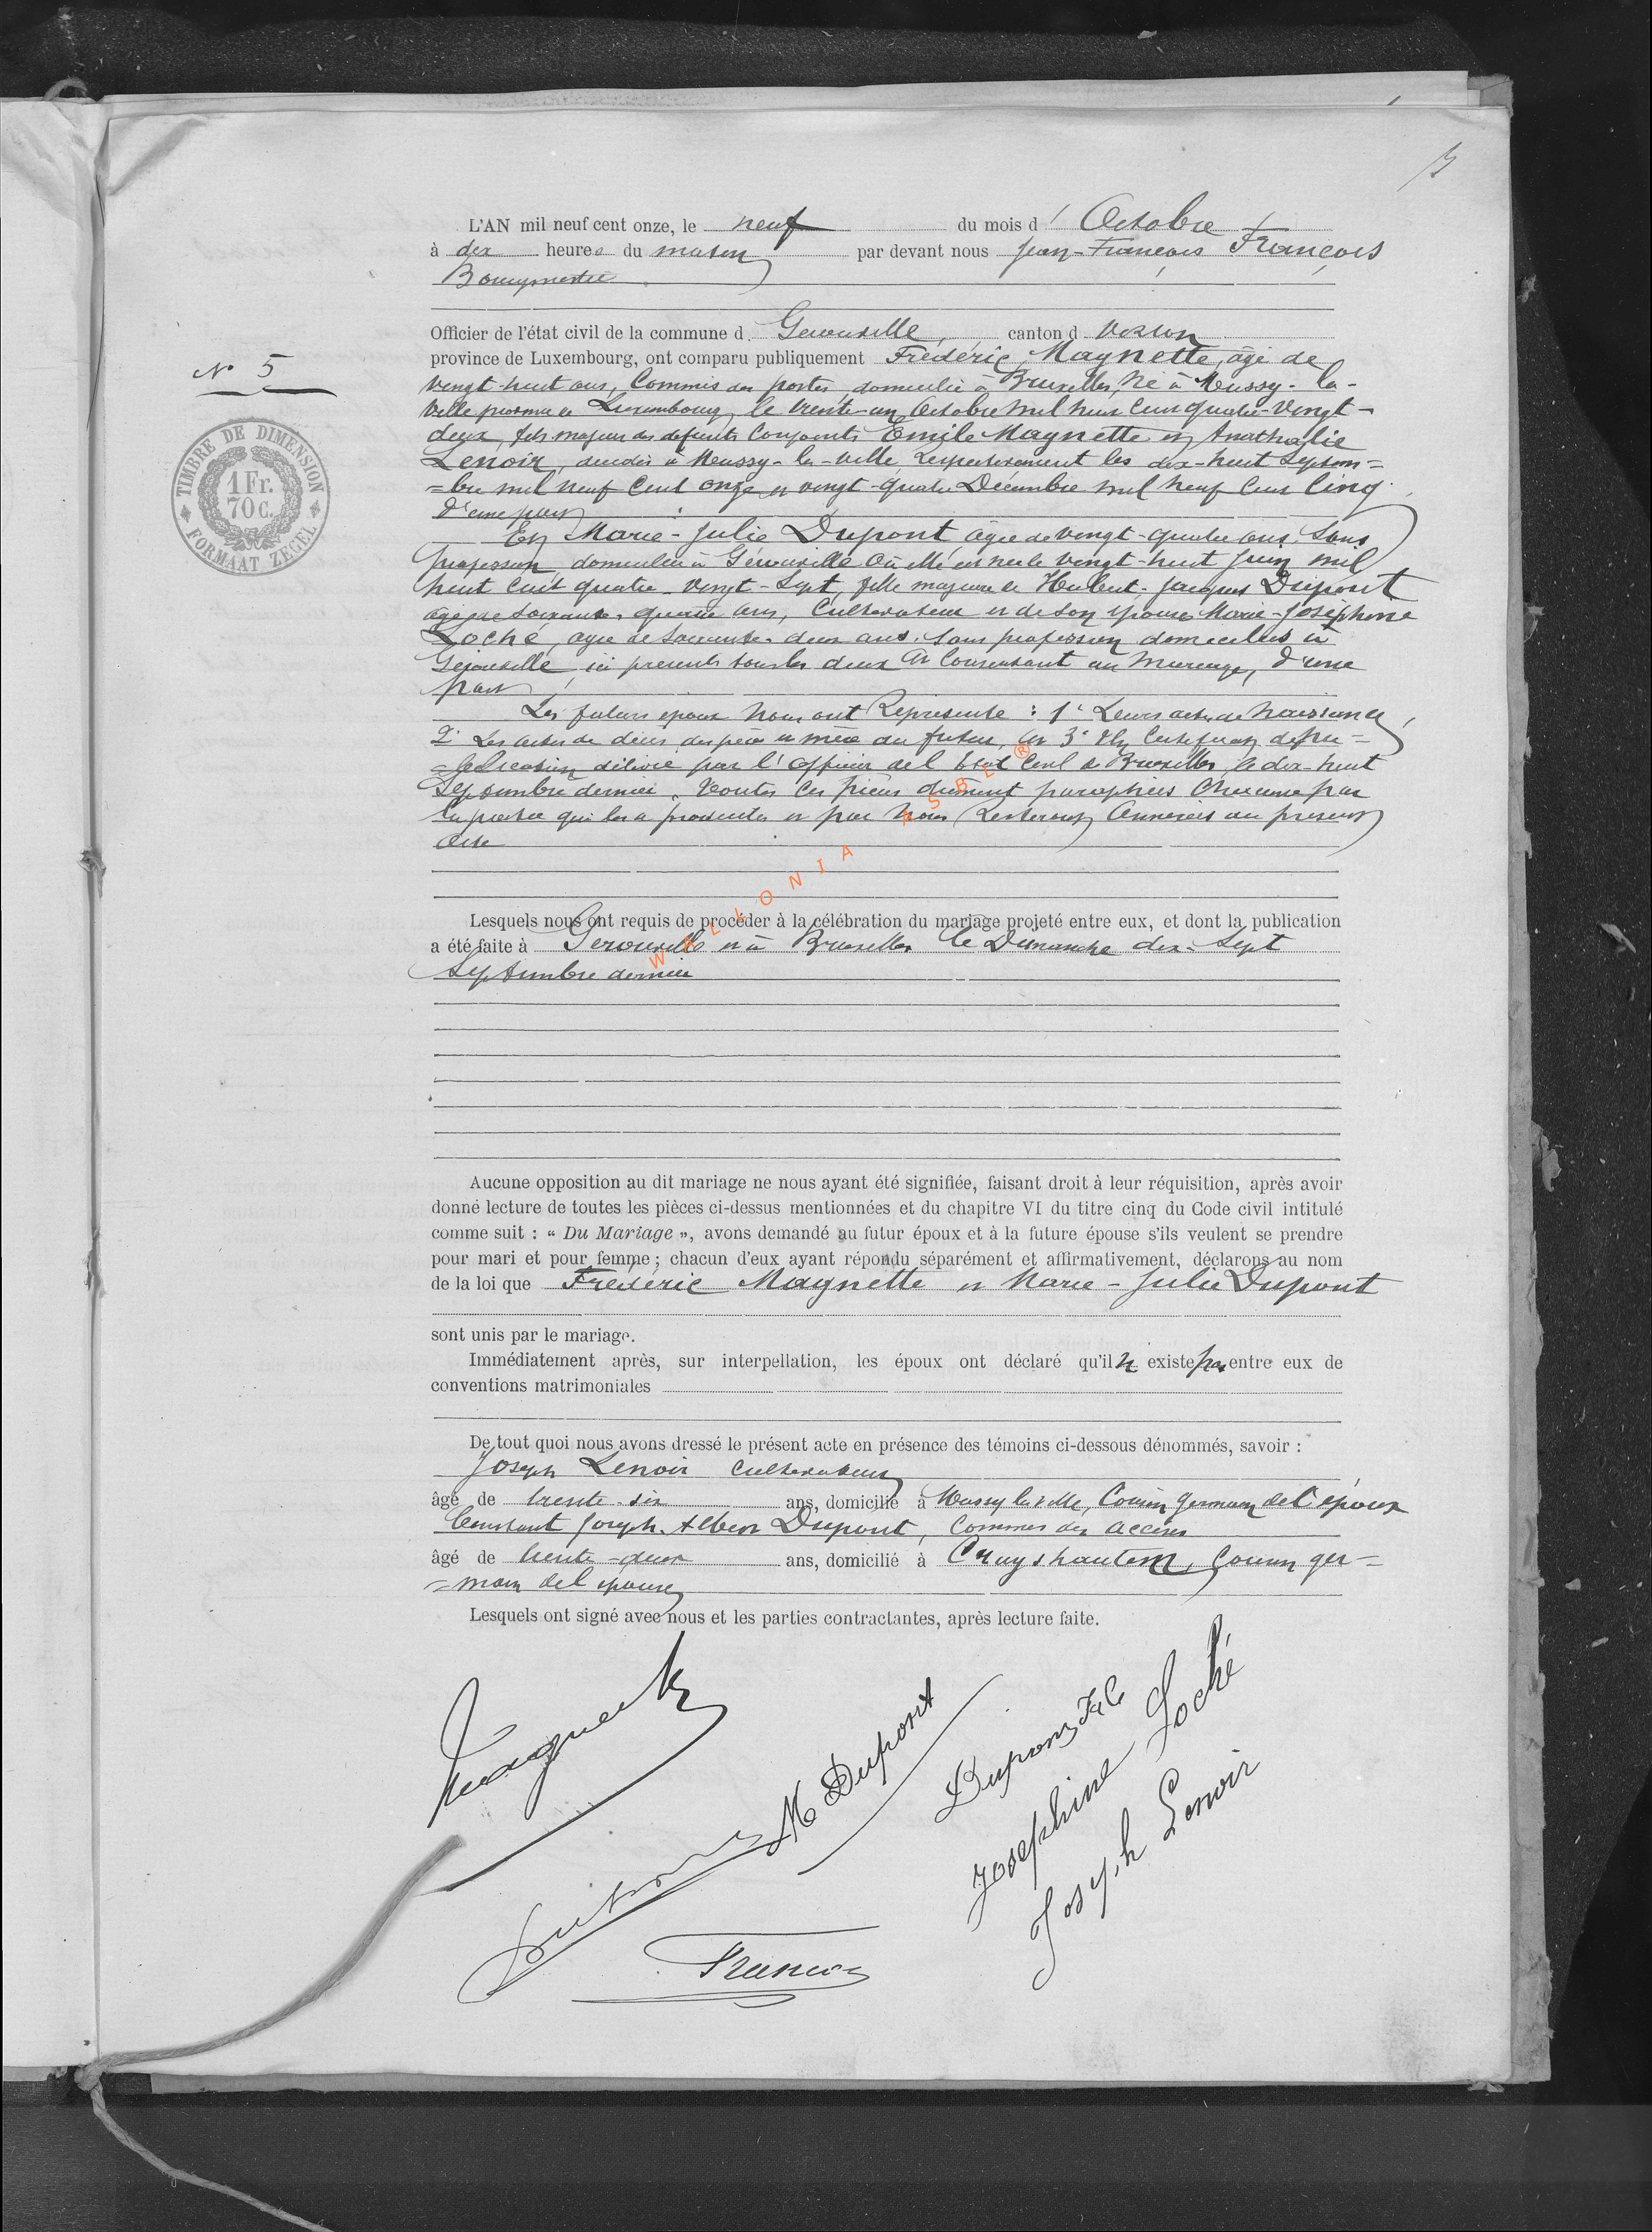 L'AN mil neuf cent onze, le neuf du mois d' Octobre
à dix heures du matin par devant nous Jean-François François
Bourgmestre
Officier de l'état civil de la commune d. Gerouville, canton d Virton
province de Luxembourg, ont comparu publiquement Fréderic Maynette, âgé de
N° 5
vingt-huit ans, Commis des postes, domicilié à Bruxelles, Né à Mussy-la-
Ville province de Luxembourg, le trente-un Octobre mil huit cent quatre-vingt-
deux, fils majeur des défunts conjoints Emile Maynette et Anathalie
Lenoir, décédés à Mussy-la-ville, respectivement les dix-huit Septem=
=bre mil neuf cent onze et vingt-quatre Décembre mil neuf cent cinq
d'une part
TIMBRE DE DIMENSION
1 Fr.
70 C.
FORMAAT ZEGEL
Et Marie-Julie Dupont âgée de vingt-quatre ans, Sans
profession domiciliée à Gérouville où elle est née le vingt-huit Juin mil
huit cent quatre-vingt-Sept, fille majeure de Hubert-Jacques Dupont
âgé de soixante-quatre ans, Cultivateur et de son épouse Marie-Joséphine
Loché, âgée de soixante-deux ans, sans profession domiciliés à
Gérouville, ici présents tous les deux et consentant au mariage, d'une
part
Les futurs époux nous ont Représenté : 1° Leurs actes de Naissance,
2° Les actes de décès des père et mère du futur, et 3° Un Certificat de pu=
=blication délivré par l'officier de l'Etat Civil de Bruxelles le dix-huit
Septembre dernier. Toutes ces pièces dûment paraphées Chacune par
la partie qui les a produites et par nous Resteront Annexées au présent
acte
WALLONIA ASBL ®
Lesquels nous ont requis de procéder à la célébration du mariage projeté entre eux, et dont la publication
a été faite à Gerouville et à Bruxelles le Dimanche dix-Sept
Septembre dernier
Aucune opposition au dit mariage ne nous ayant été signifiée, faisant droit à leur réquisition, après avoir
donné lecture de toutes les pièces ci-dessus mentionnées et du chapitre VI du titre cinq du Code civil intitulé
comme suit : « Du Mariage », avons demandé au futur époux et à la future épouse s'ils veulent se prendre
pour mari et pour femme ; chacun d'eux ayant répondu séparément et affirmativement, déclarons au nom
de la loi que Fréderic Maynette et Marie-Julie Dupont
sont unis par le mariage.
Immédiatement après, sur interpellation, les époux ont déclaré qu'il n existe pas entre eux de
conventions matrimoniales
De tout quoi nous avons dressé le présent acte en présence des témoins ci-dessous dénommés, savoir :
Joseph Lenoir cultivateur
âgé de trente-six ans, domicilié à Mussy la ville, Cousin germain de l'époux
Constant Joseph Albert Dupont, Commis des accises
âgé de trente-deux ans, domicilié à Cruyshautem, Cousin ger=
=main de l'épouse
Lesquels ont signé avec nous et les parties contractantes, après lecture faite.
M Dupont
Josephine Loché
Joseph Lenoir
François